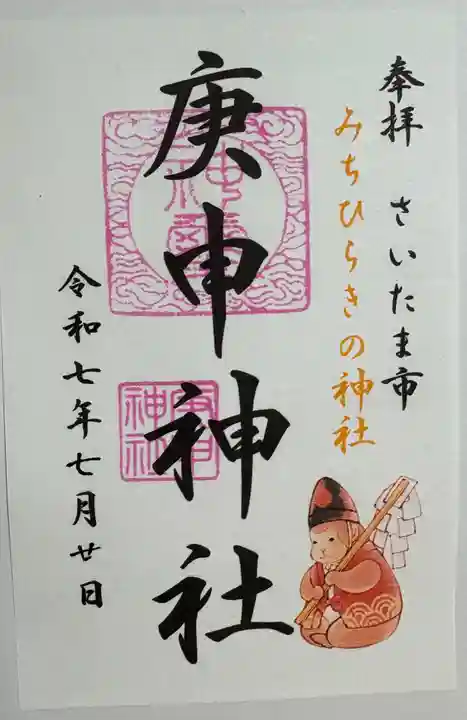 奉拝 さいたま市
みちひらきの神社
庚申神社
神璽
庚申神社
令和七年七月廿日